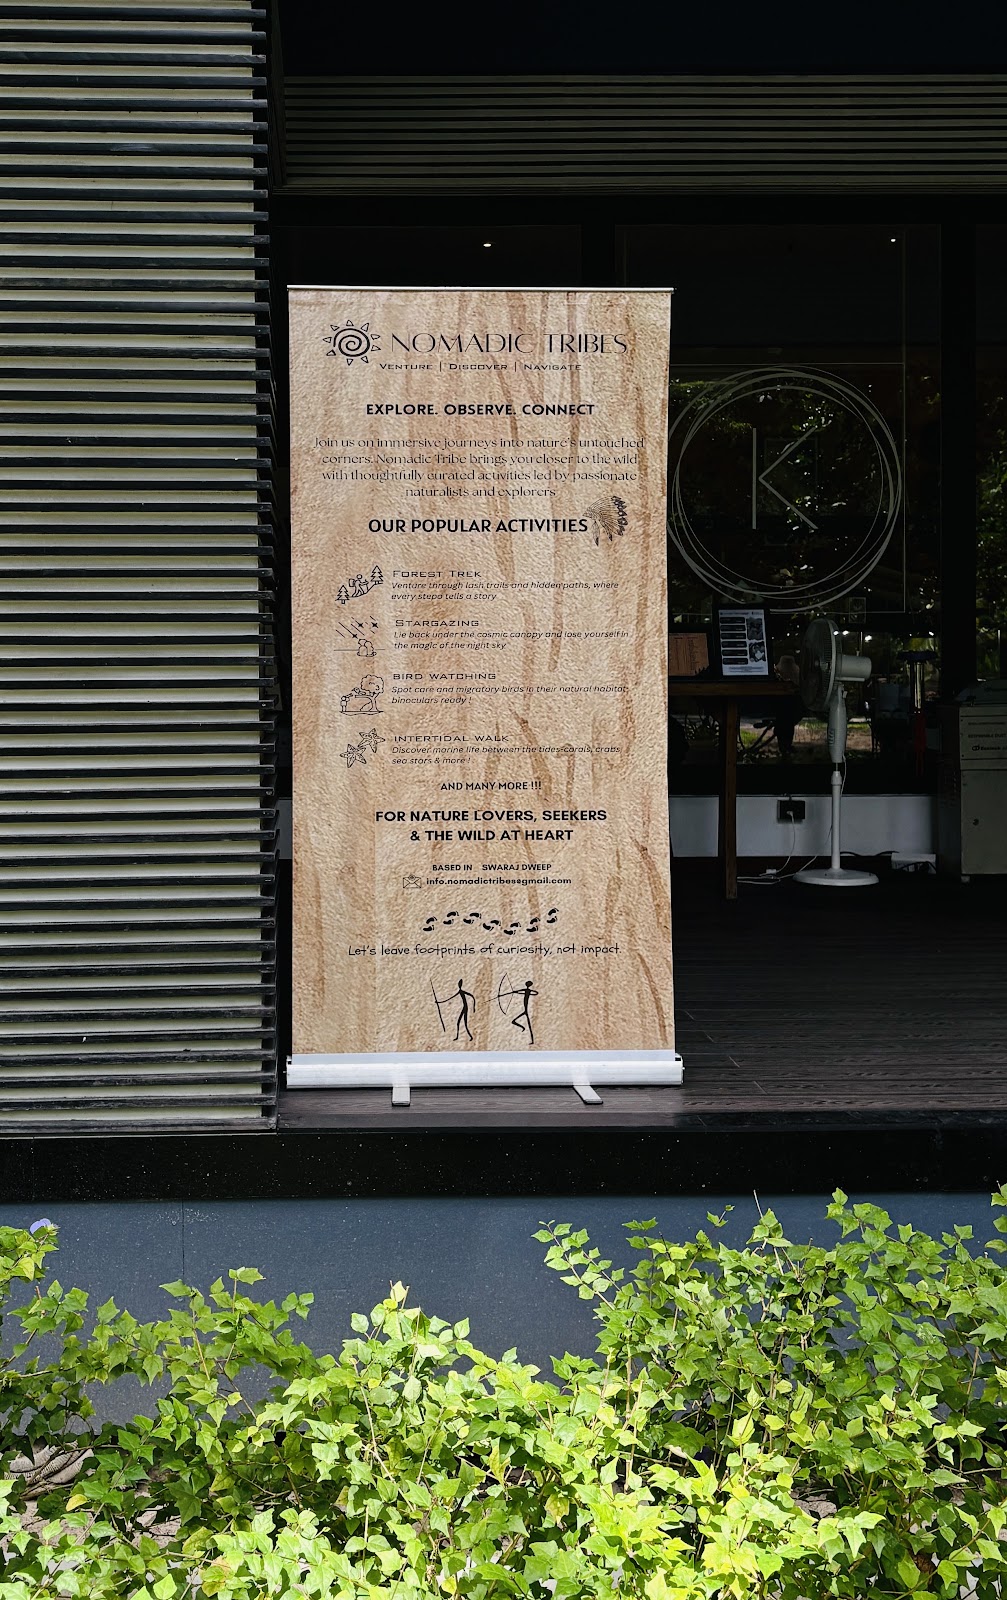 NOMADIC TRIBES
VENTURE | DISCOVER | NAVIGATE
EXPLORE. OBSERVE. CONNECT
Join us on immersive journeys into nature's untouched
corners. Nomadic Tribe brings you closer to the wild
with thoughtfully curated activities led by passionate
naturalists and explorers
OUR POPULAR ACTIVITIES
FOREST TREK
Venture through lush trails and hidden paths, where
every stepa tells a story
STARGAZING
Lie back under the cosmic canopy and lose yourself in
the magic of the night sky
BIRD WATCHING
Spot care and migratory birds in their natural habitat,
binoculars ready !
INTERTIDAL WALK
Discover marine life between the tides-corals, crabs,
sea stars & more !
AND MANY MORE !!!
FOR NATURE LOVERS, SEEKERS
& THE WILD AT HEART
BASED IN SWARAJ DWEEP
info.nomadictribes@gmail.com
Let's leave footprints of curiosity, not impact.
K